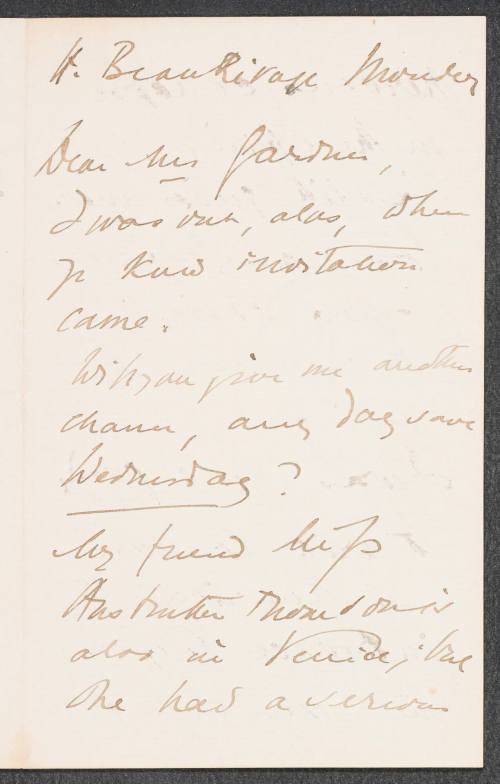 H. Beau Rivage Monday
Dear Mrs Gardner,
I was out, alas, when
yr kind invitation
came.
Will you give me another
chance, any day save
Wednesday?
My friend Miss
Anstruther Thomson is
also in Venice, but
she had a serious